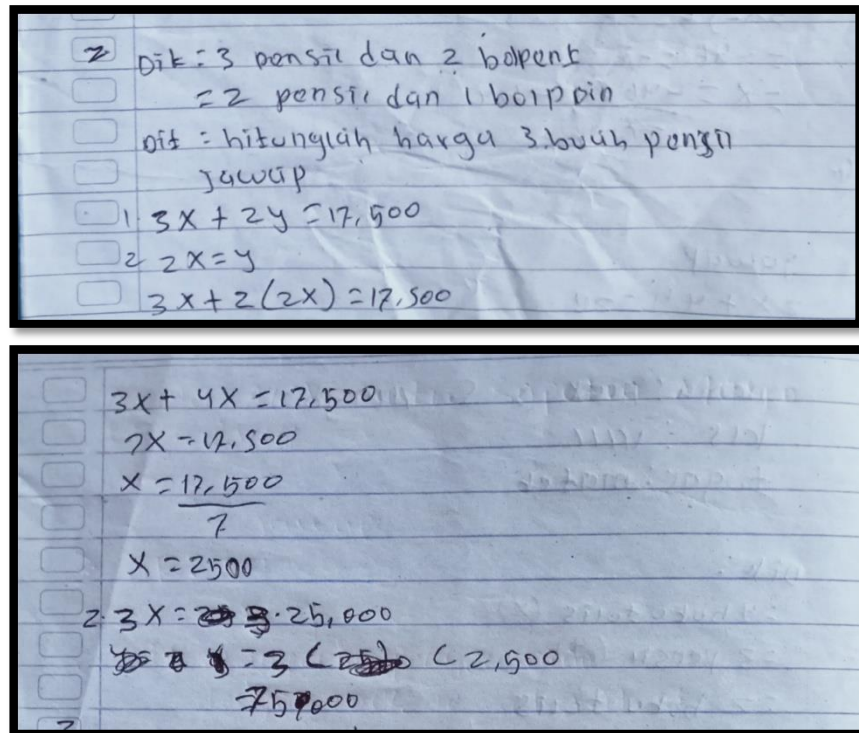 2 Dik = 3 pensil dan 2 bolpent
= 2 pensil dan 1 bolppin
Dit = hitunglah harga 3 buah pensil
Jawap
1. 3x + 2y = 17,500
2 2x = y
3x + 2 (2x) = 17,500
3x + 4x = 17,500
7x = 17,500
x = 17,500
7
x = 2500
2. 3x = 3 . 25,000
= 3 ( 2,500
= 75,000